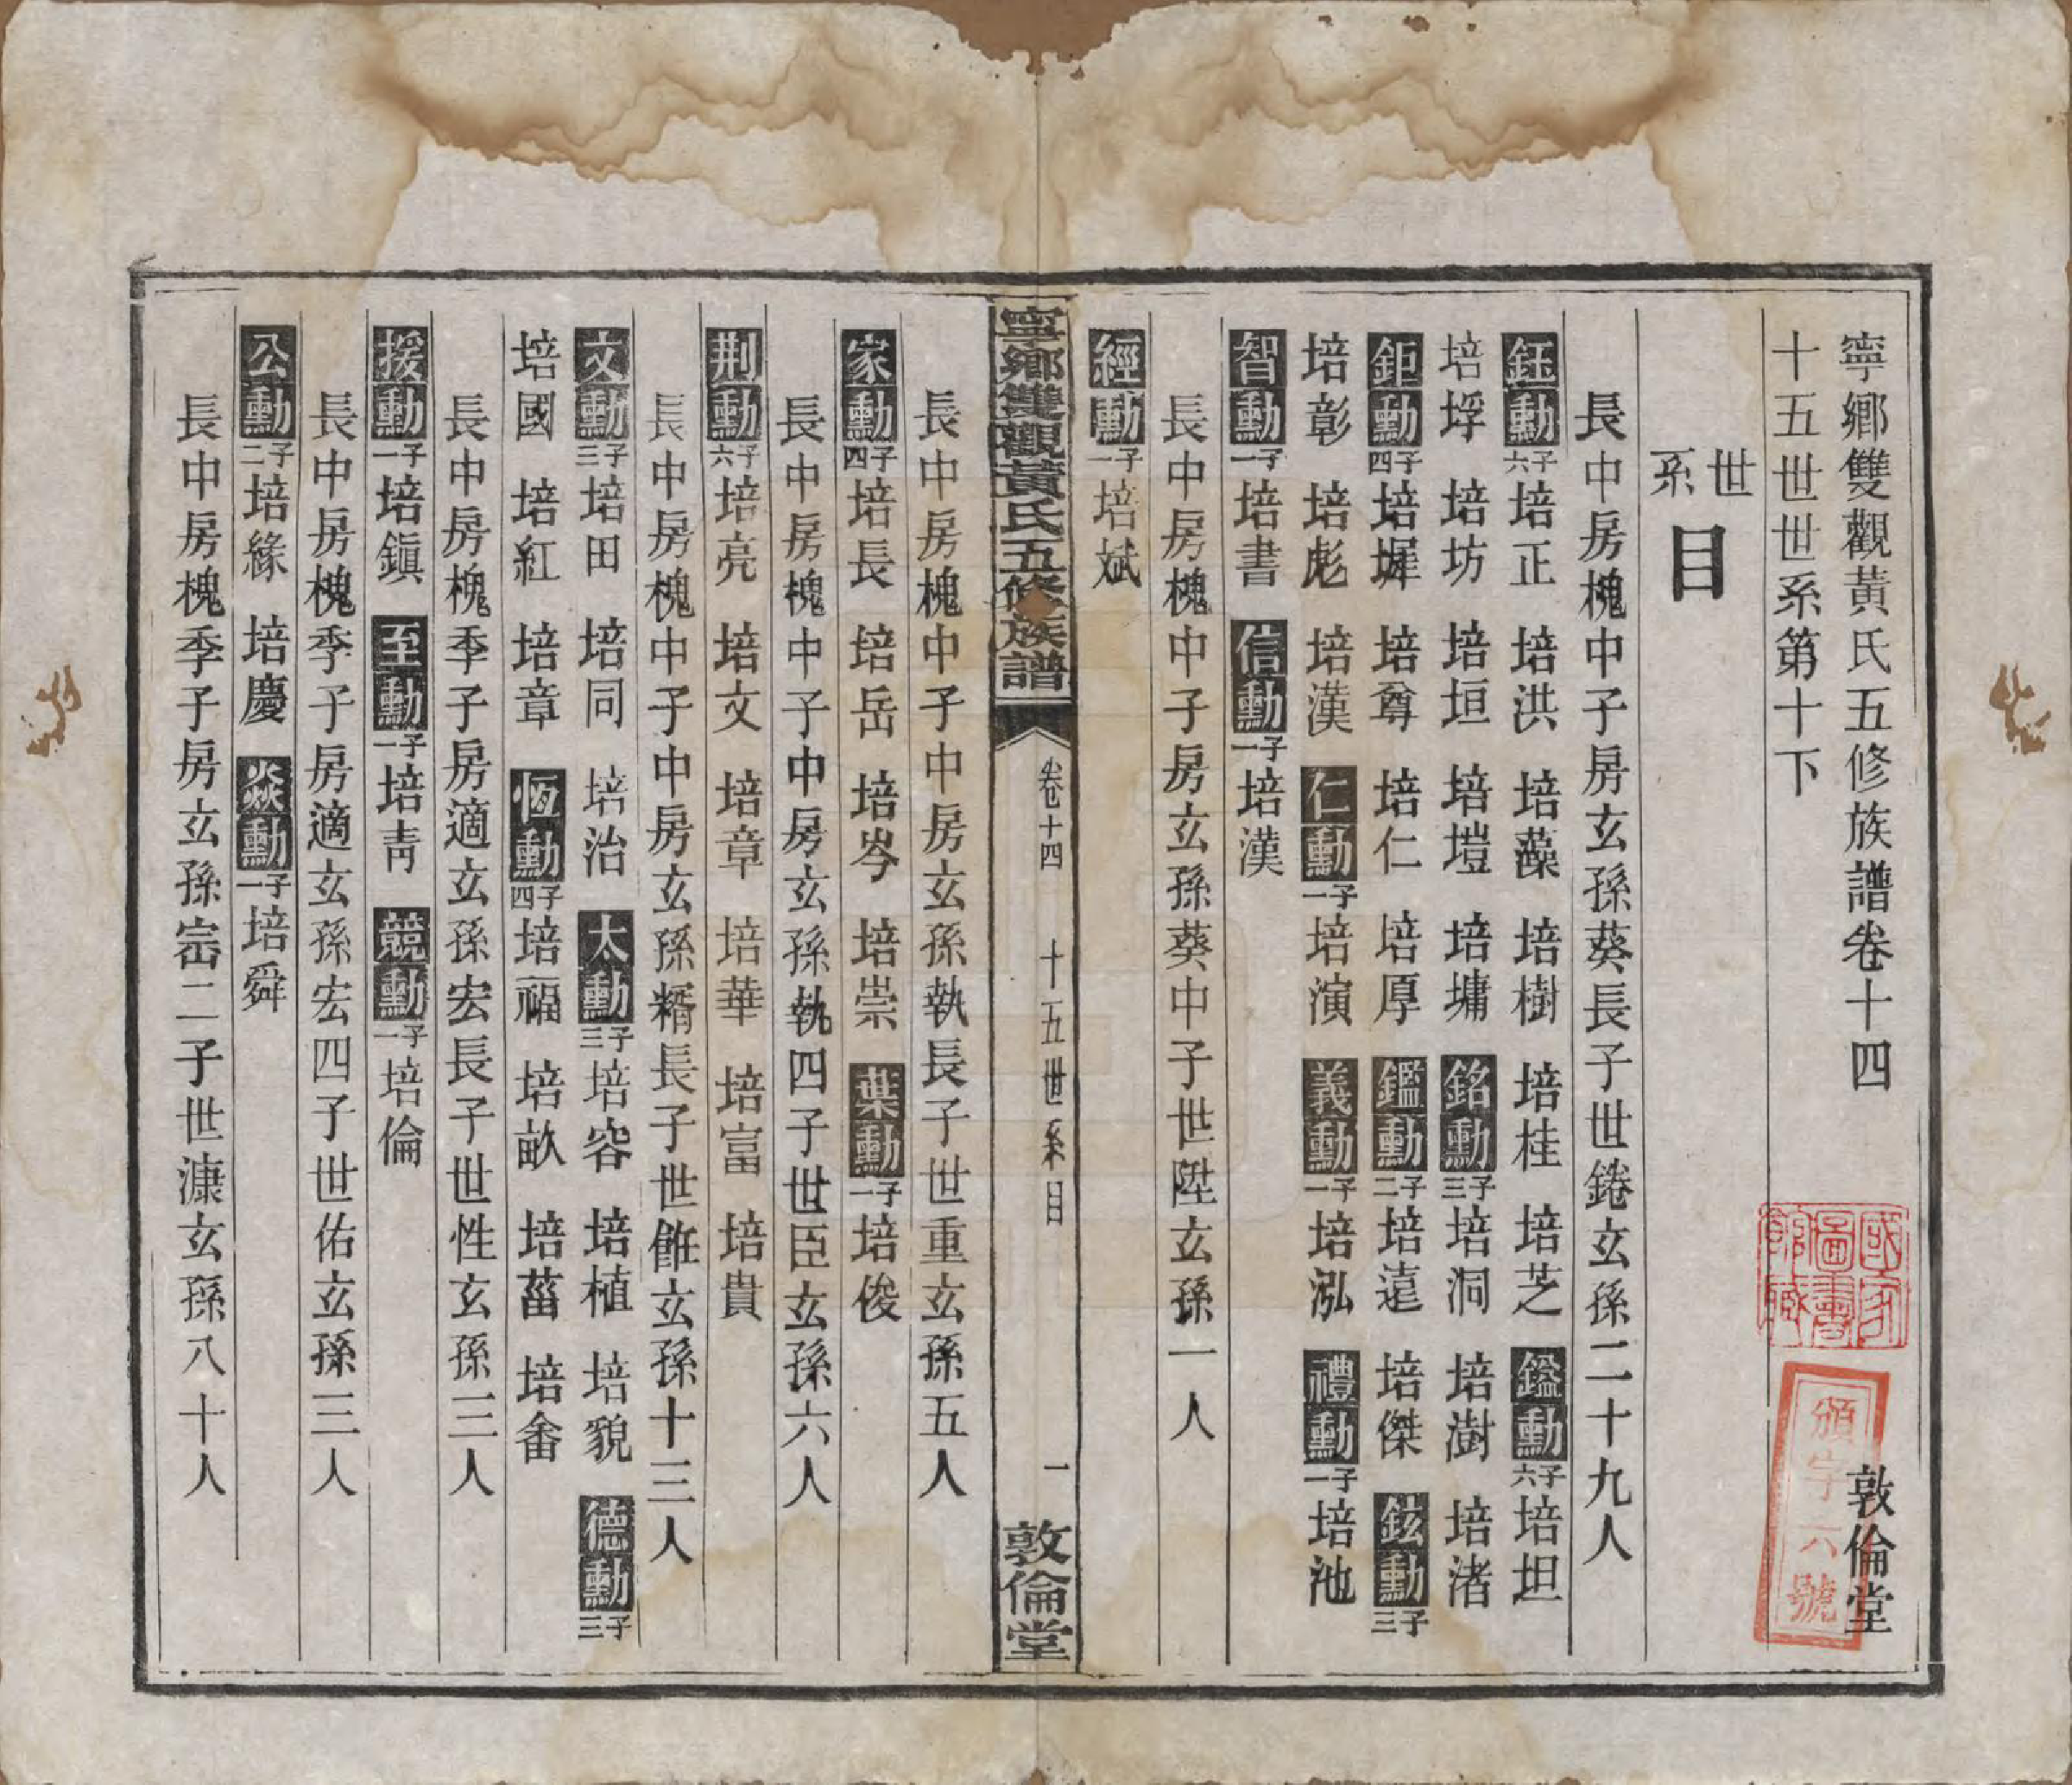 寧鄉雙觀黃氏五修族譜卷十四 敦倫堂
十五世世系第十下
世系目
長中房槐中子房玄孫葵長子世錈玄孫二十九人
鈺勳六子培正 培洪 培藻 培樹 培桂 培芝 鎰勳六子培坦
培垺 培坊 培垣 培塏 培墉 銘勳三子培洞 培澍 培渚
鉅勳四子培墀 培尊 培仁 培厚 鑑勳二子培遠 培傑 鉉勳三子
培彰 培彪 培漢 仁勳一子培演 義勳一子培泓 禮勳一子培池
智勳一子培書 信勳一子培漢
長中房槐中子房玄孫葵中子世陞玄孫一人
經勳一子培斌
寧鄉雙觀黃氏五修族譜 卷十四 十五世系目 一 敦倫堂
長中房槐中子中房玄孫執長子世重玄孫五人
家勳四子培長 培岳 培岑 培崇 葉勳一子培俊
長中房槐中子中房玄孫執四子世臣玄孫六人
荆勳六子培亮 培文 培章 培華 培富 培貴
長中房槐中子中房玄孫糈長子世雒玄孫十三人
文勳三子培田 培同 培治 太勳三子培容 培植 培貌 德勳三子
培國 培紅 培章 恆勳四子培福 培畝 培菑 培畬
長中房槐季子房適玄孫宏長子世性玄孫三人
援勳一子培鎭 至勳一子培靑 競勳一子培倫
長中房槐季子房適玄孫宏四子世佑玄孫三人
公勳二子培緣 培慶 焱勳一子培舜
長中房槐季子房玄孫崈二子世漮玄孫八十人
國家圖書館藏
頒字六號